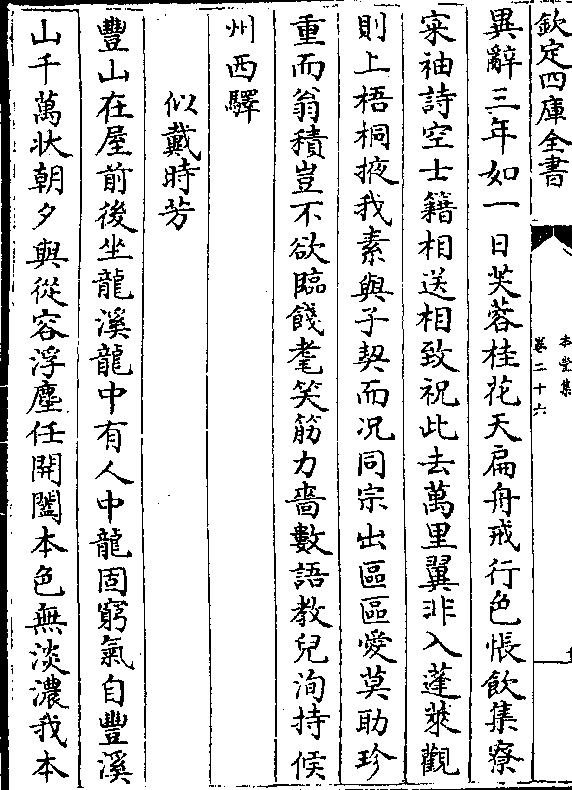 欽定四庫全書
本堂集
卷二十六
異辭三年如一日芙蓉桂花天扁舟戒行色悵飲集寮
寀袖詩空士籍相送相致祝此去萬里翼非入蓬萊觀
則上梧桐掖我素與子契而况同宗出區區愛莫助珍
重而翁積豈不欲臨餞耄笑筋力嗇數語教兒洵持候
州西驛
似戴時芳
豐山在屋前後坐龍溪龍中有人中龍固窮氣自豐溪
山千萬狀朝夕與從容浮塵任開闔本色無淡濃我本